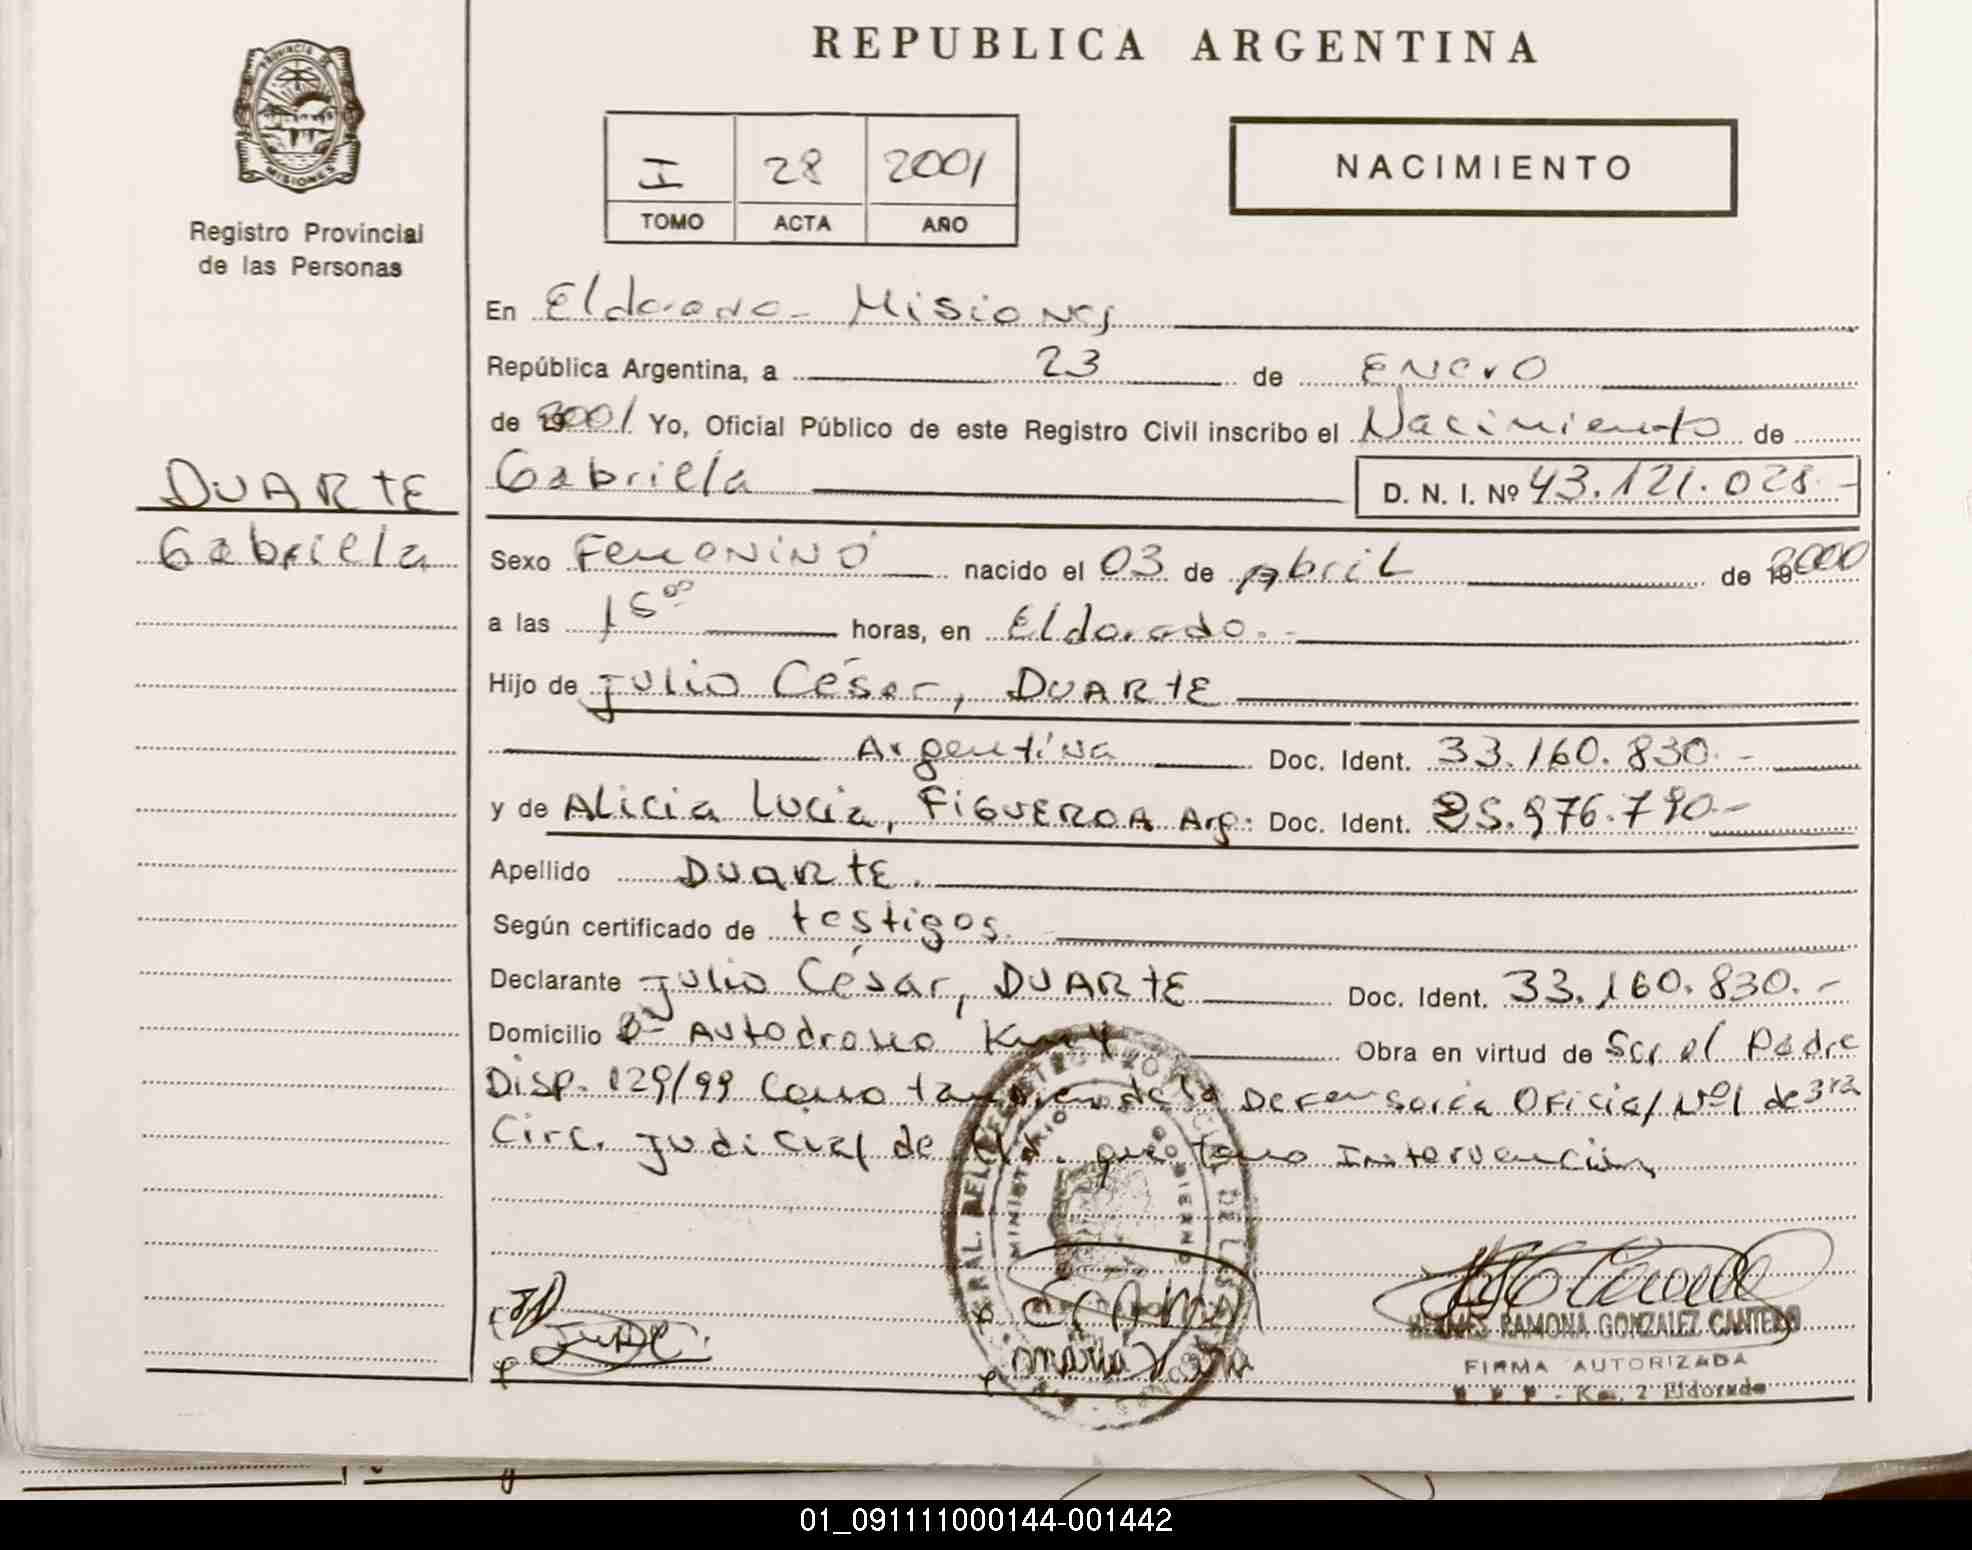 REPUBLICA ARGENTINA
PROVINCIA DE
MISIONES
Registro Provincial
de las Personas
I 28 2001
TOMO ACTA AÑO
NACIMIENTO
En Eldorado - Misiones
República Argentina, a 23 de Enero
de 2001 Yo, Oficial Público de este Registro Civil inscribo el Nacimiento de
DUARTE
Gabriela
Gabriela D. N. I. Nº 43.121.028.-
Sexo Femenino nacido el 03 de Abril de 2000
a las 15⁰⁰ horas, en Eldorado.-
Hijo de Julio César, DUARTE
Argentina Doc. Ident. 33.160.830.-
y de Alicia Lucia, FIGUEROA Arg. Doc. Ident. 25.976.790.-
Apellido DUARTE.
Según certificado de testigos.
Declarante Julio César, DUARTE Doc. Ident. 33.160.830.-
Domicilio Bº Autodromo Km 4 Obra en virtud de Ser el Padre
Disp. 129/99 Como tambien de la Defensoria Oficial Nº1 de 3ra
Circ. Judicial de Eld. que tomo Intervención
JD
JuDC.
maria
HERMES RAMONA GONZALEZ CANTERO
FIRMA AUTORIZADA
R P P - Km. 2 Eldorado
01_091111000144-001442